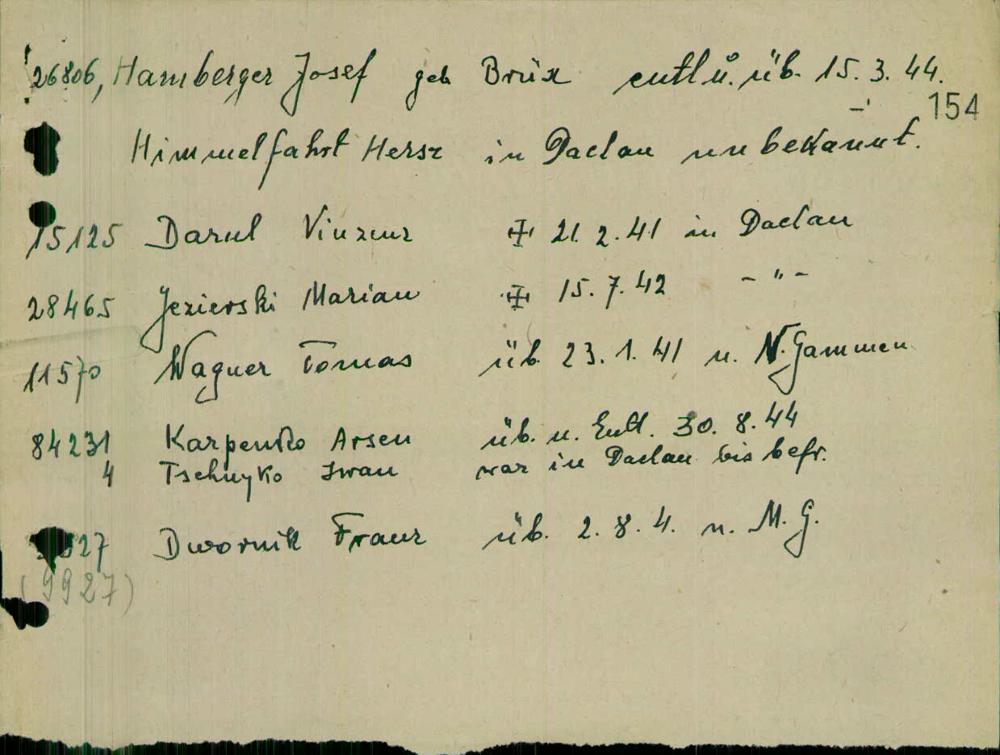 26806, Hamberger Josef geb Brüx entl ü. üb. 15.3.44.
154
Himmelfahrt Hersz in Dachau unbekannt.
15125 Darul Vinzenz 21.2.41 in Dachau
28465 Jezierski Marian 15.7.42 - " -
11570 Wagner Tomas üb. 23.1.41 n. N.Gammen
84231 Karpenko Arsen üb. n. Entl. 30.8.44
4 Tschuyko Iwan war in Dachau bis befr.
27 Dwornik Franz üb. 2.8.4. n. M.G.
(9927)